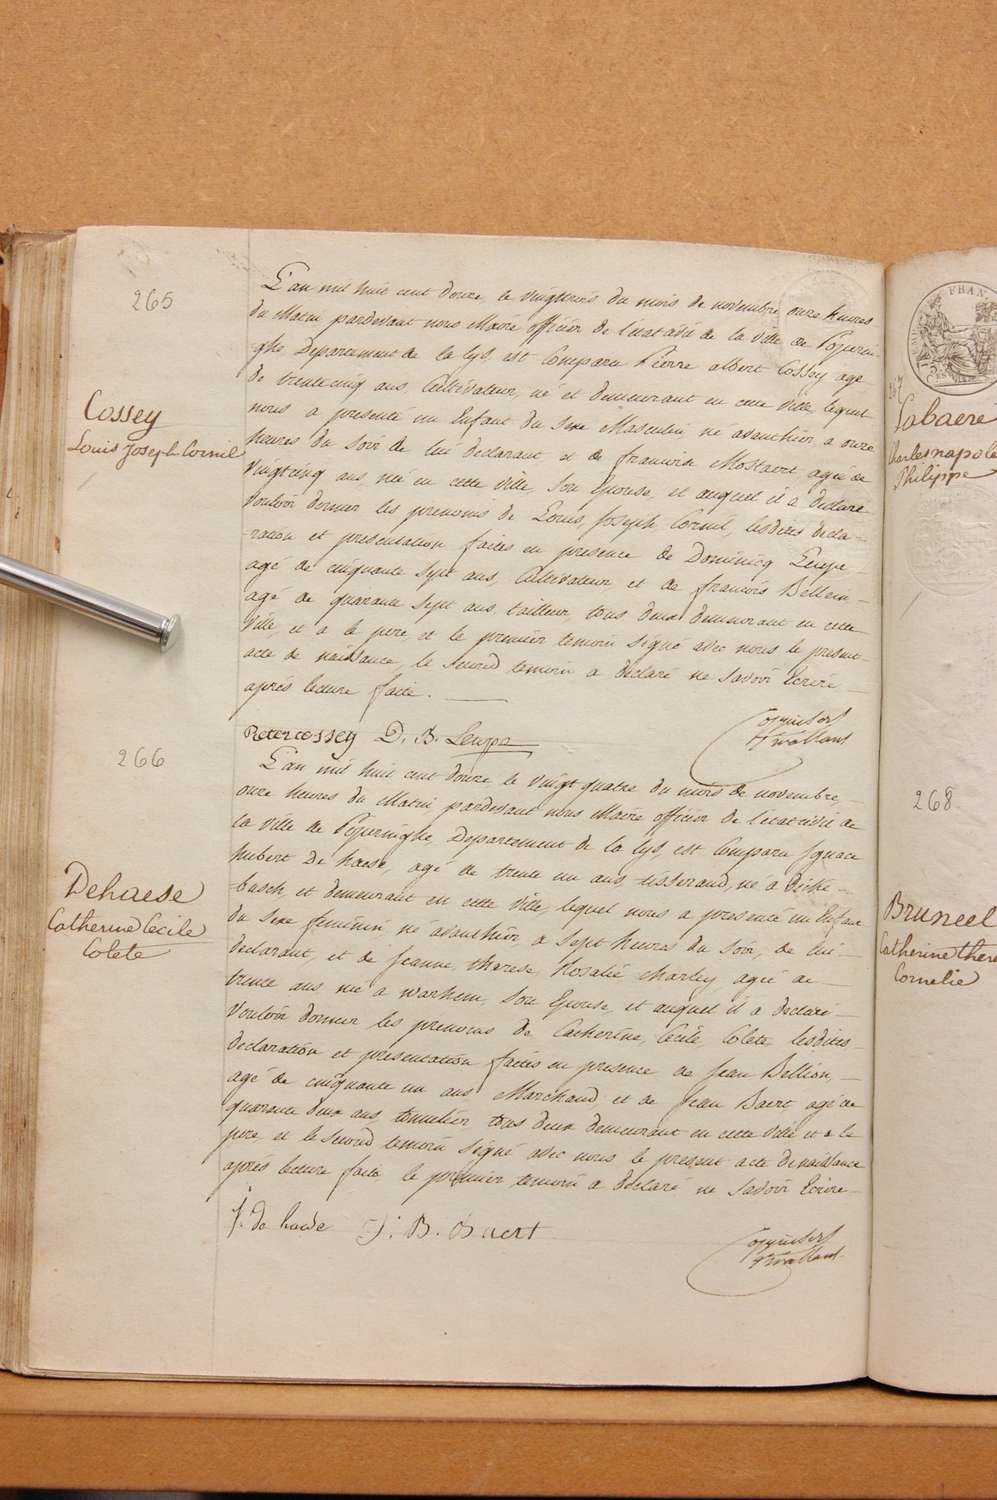 265
Cossey
Louis Joseph Cornil
L'an mil huit cent douze le vingttrois du mois de novembre onze heures
du Matin pardevant nous Maire officier de l'etat civil de la ville de Poperin
ghe Departement de la Lys, est Comparu Pierre albert Cossey age
de trentecinq ans, Cultivateur, né et demeurant en cette ville, lequel
nous a presenté un Enfant du sexe Masculin né avanthier a onze
heures du soir de lui declarant et de francoise Mostaert agée de
vingtcinq ans, née en cette ville, son Epouse, et auquel il a declaré
vouloir donner les prenoms de Louis, Joseph, Cornil, lesdites decla-
-ration et presentation faites en presence de Dominicq Leupe
agé de cinquante sept ans, Cultivateur, et de francois Bellem
agé de quarante sept ans, tailleur, tous deux demeurant en cette
ville, et a le pere et le premier temoin signé avec nous le present
acte de naissance, le second temoin a declaré ne savoir Ecrire
après lecture faite.
Pieter cossey D. B. Leupe
266
Dehaese
Catherine Cécile
Colete
L'an mil huit cent douze le vingt quatre du mois de novembre,
onze heures du Matin, pardevant nous Maire officier de l'etat civil de
la ville de Poperinghe, Departement de la Lys, est Comparu Ignace
hubert De haese, agé de trente un ans tisserand, né à
et demeurant en cette ville, lequel nous a presenté un Enfant
du sexe feminin né avanthier a sept heures du soir, de lui
declarant, et de Jeanne, therese, Rosalie Charley agée de
trente ans née a Warhem, son Epouse, et auquel il a declaré
vouloir donner les prenoms de Catherine, Cécile Colete lesdites
declaration et presentation faites en presence de Jean Bellion,
agé de cinquante un ans Marchand et de Jean Baert agé de
quarante deux ans, tonnelier tous deux demeurant en cette ville et a le
pere et le second temoin signé avec nous le present acte de naissance
après lecture faite le premier temoin a declaré ne savoir Ecrire
J. de haese J. B. Baert
FRAN
267
Labaere
Charles napole
Philippe
268
Bruneel
Catherine there
Cornelie